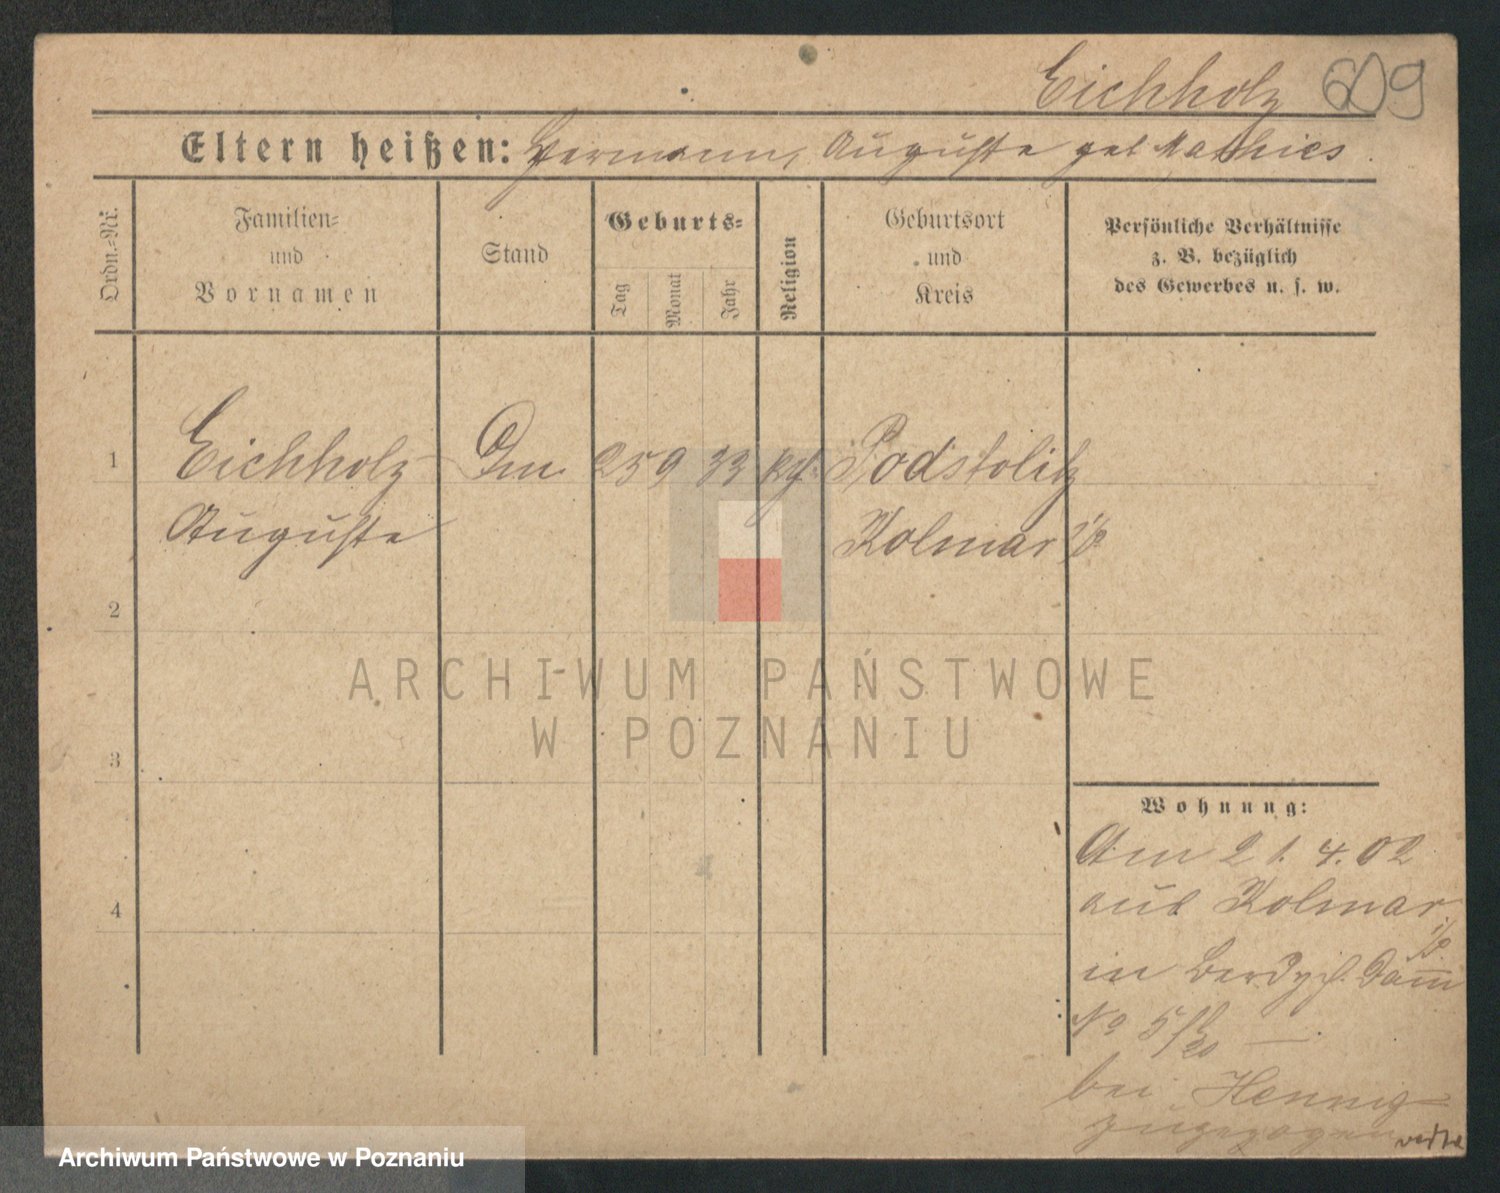 Eichholz 609
Eltern heißen: Hermann, Auguste geb Mathies
Ordn.=Nr.
Familien=
und
Vornamen
Stand
Geburts=
Tag
Monat
Jahr
Religion
Geburtsort
und
Kreis
Persönliche Verhältnisse
z. B. bezüglich
des Gewerbes u. s. w.
1 Eichholz 25 9 33 Podstolitz
Auguste Kolmar i/P
2
3
4
Wohnung:
Am 21. 4. 02
aus Kolmar
i/P
in
No 5
bei Hennig
zugezogen
ARCHIWUM PAŃSTWOWE
W POZNANIU
Archiwum Państwowe w Poznaniu